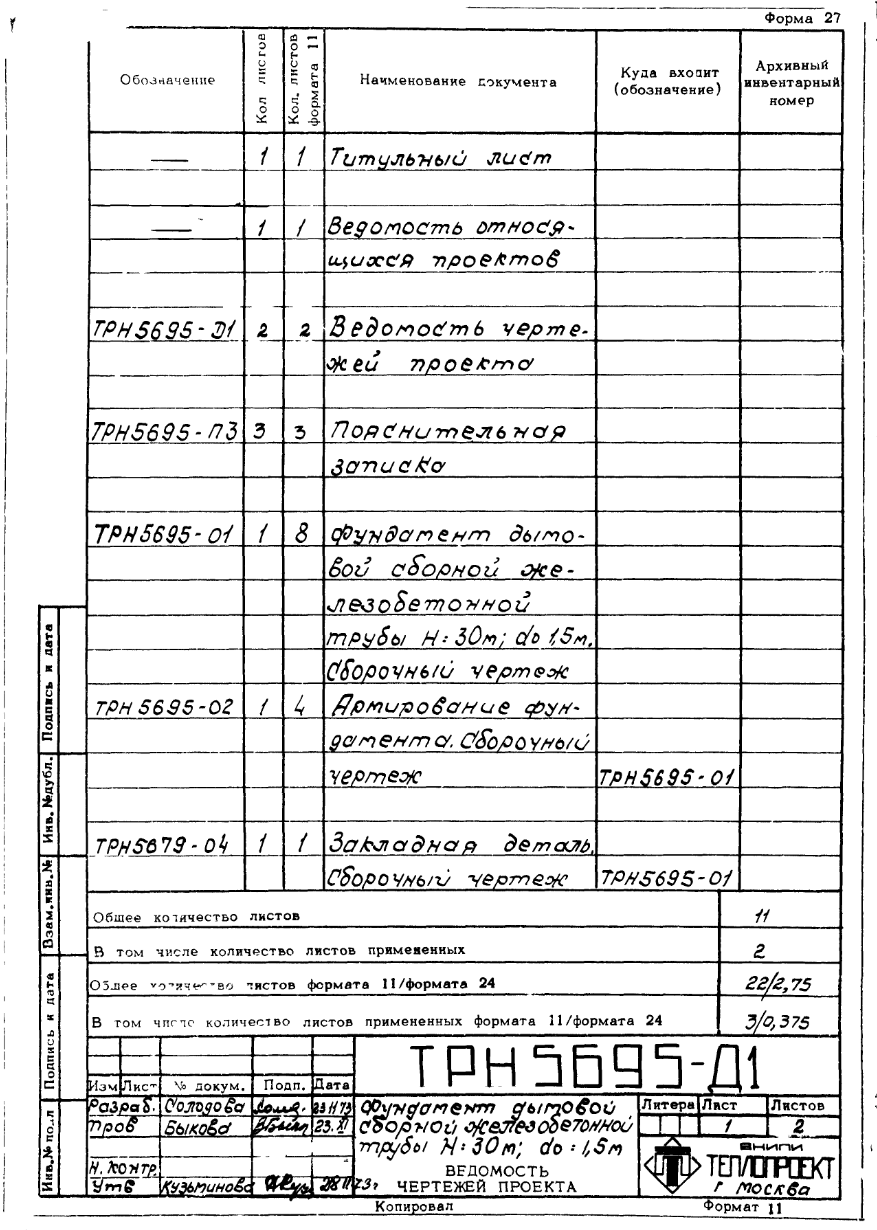 Форма 27
Обозначение
Кол листов
Кол. листов формата 11
Наименование документа
Куда входит (обозначение)
Архивный инвентарный номер
— 1 1 Титульный лист
— 1 1 Ведомость относя-
щихся проектов
ТРН5695-Д1 2 2 Ведомость черте-
жей проекта
ТРН5695-ПЗ 3 3 Пояснительная
записка
ТРН5695-01 1 8 Фундамент дымо-
вой сборной же-
лезобетонной
трубы Н=30м; do 1,5м.
Сборочный чертеж
ТРН5695-02 1 4 Армирование фун-
дамента. Сборочный
чертеж ТРН5695-01
ТРН5679-04 1 1 Закладная деталь.
Сборочный чертеж ТРН5695-01
Общее количество листов 11
В том числе количество листов примененных 2
Общее количество листов формата 11/формата 24 22/2,75
В том числе количество листов примененных формата 11/формата 24 3/0,375
Подпись и дата
Инв. №дубл.
Взам.инв.№
Подпись и дата
Инв.№ подл
ТРН5695-Д1
Изм Лист № докум. Подп. Дата
Разраб. Солодова 23 11 73
Пров Быкова 23.XI
Н. контр.
Утв Кузьминова 28 11 73г
Фундамент дымовой
сборной железобетонной
трубы Н=30м; do=1,5м
ВЕДОМОСТЬ
ЧЕРТЕЖЕЙ ПРОЕКТА
Литера Лист Листов
1 2
ВНИПИ
ТЕПЛОПРОЕКТ
г МОСКВА
Копировал
Формат 11